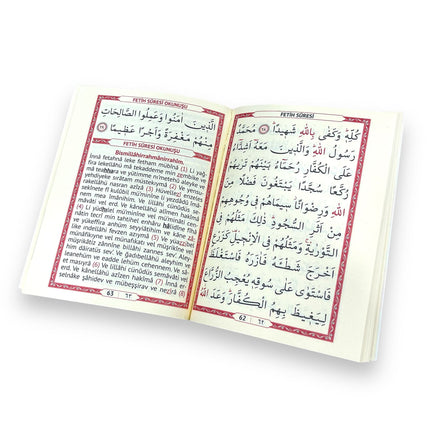 FETİH SÛRESİ
كُلِّهِ وَكَفَى بِاللّٰهِ شَهِيدًا ﴿٢٨﴾ مُحَمَّدٌ
رَسُولُ اللّٰهِ وَالَّذِينَ مَعَهُ اَشِدَّاءُ
عَلَى الْكُفَّارِ رُحَمَاءُ بَيْنَهُمْ تَرٰيهُمْ
رُكَّعًا سُجَّدًا يَبْتَغُونَ فَضْلًا مِنَ
اللّٰهِ وَرِضْوَانًا سِيمَاهُمْ فِى وُجُوهِهِمْ
مِنْ اَثَرِ السُّجُودِ ذٰلِكَ مَثَلُهُمْ فِى
التَّوْرٰيةِ وَمَثَلُهُمْ فِى الْاِنْجِيلِ كَزَرْعٍ
اَخْرَجَ شَطْـَٔهُ فَاٰزَرَهُ فَاسْتَغْلَظَ
فَاسْتَوٰى عَلٰى سُوقِهِ يُعْجِبُ الزُّرَّاعَ
لِيَغِيظَ بِهِمُ الْكُفَّارَ وَعَدَ اللّٰهُ
62 ٦٢
FETİH SÛRESİ OKUNUŞU
الَّذِينَ اٰمَنُوا وَعَمِلُوا الصَّالِحَاتِ
مِنْهُمْ مَغْفِرَةً وَاَجْرًا عَظِيمًا ﴿٢٩﴾
FETİH SÛRESİ OKUNUŞU
Bismillâhirrahmânirrahîm,
İnnâ fetahnâ leke fetham mübînâ (1) Li yağ-
fira lekellâhü mâ tekaddeme min zembike ve
mâ teahhara ve yütimme ni'metehû aleyke ve
yehdiyeke sırâtam müstekıymâ (2) Ve yensu-
rakellâhü nasran azîzâ (3) Hüvellezî enzeles
sekînete fî kulûbil mü'minîne li yezdâdû îmâ-
nem mea îmânihim. Ve lillâhi cünûdüs semâ-
vâti vel erd. Ve kânellâhü alîmen hakîmâ
(4) Li yüdhilel mü'minîne vel mü'minâti cen-
nâtin tecrî min tahtihel enhâru hâlidîne fîhâ
ve yükeffira anhüm seyyiâtihim. Ve kâne zâ-
like indellâhi fevzen azîmâ (5) Ve yüazzibel
münâfikıyne vel münafikati vel müşrikîne vel
müşrikâtiz zânnîne billâhi zannes sev'. Aley-
him dâiratüs sev'. Ve ğadıbellâhü aleyhim ve
leanehüm ve eadde lehüm cehennem. Ve sâ-
et masîrâ (6) Ve lillâhi cünûdüs semâvâti vel
erd. Ve kânellâhü azîzen hakîmâ (7) İnnâ er-
selnâke şâhidev ve mübeşşirav ve nezîrâ (8)
63 ٦٣